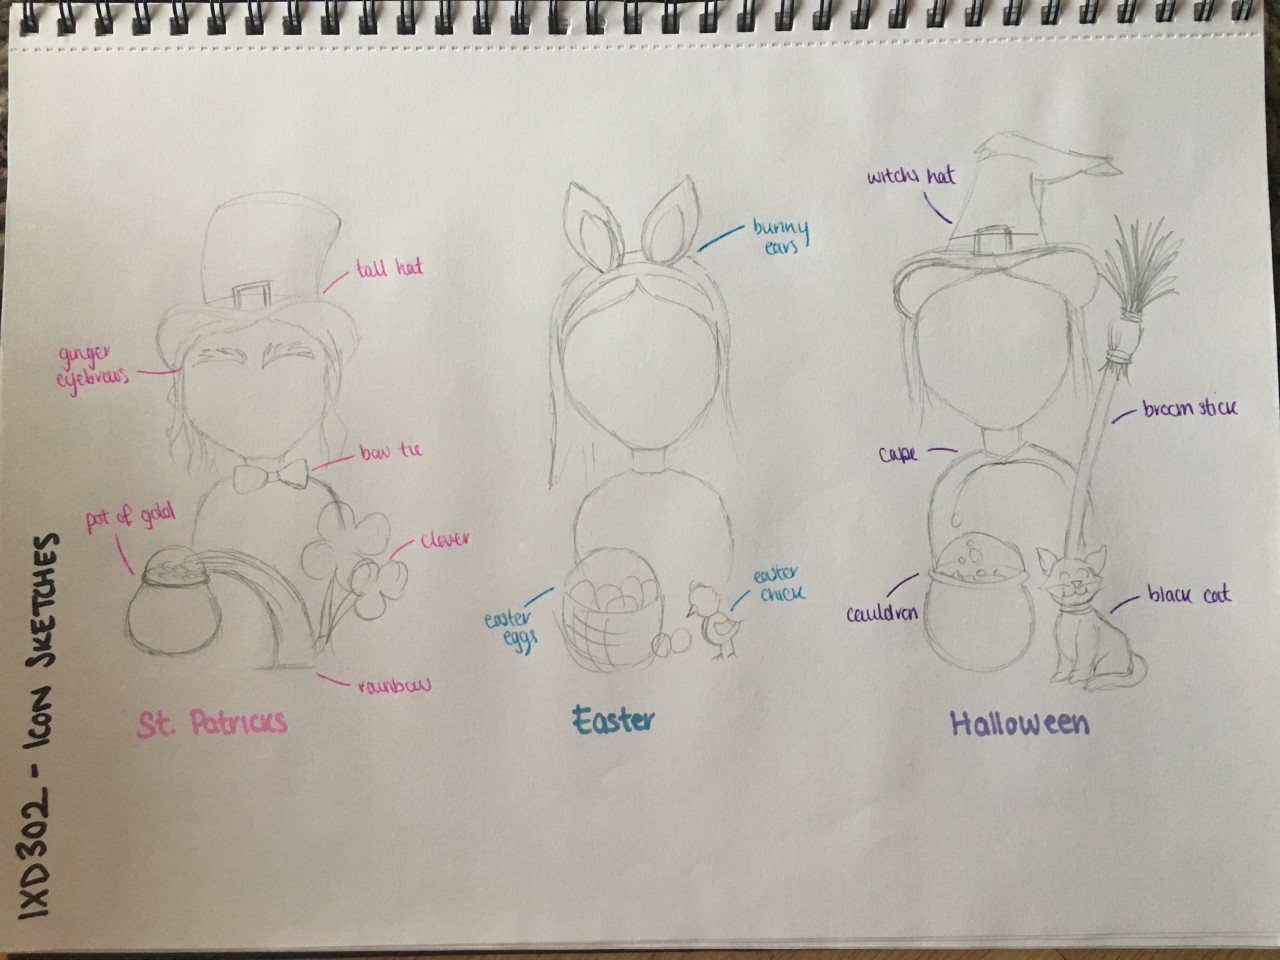 IXD302 - ICON SKETCHES
tall hat
ginger
eyebrows
bow tie
pot of gold
clover
rainbow
St. Patricks
bunny
ears
easter
eggs
easter
chick
Easter
witchs hat
broom stick
cape
cauldron
black cat
Halloween